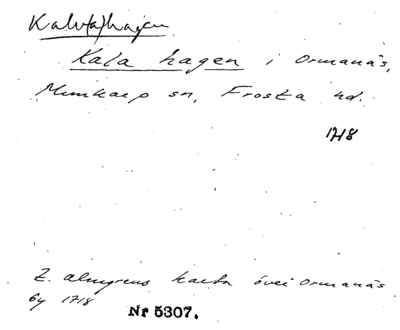 Kalv(a)hagen
Kala hagen i Ormanäs,
Munkarp sn, Frosta hd.
1718
Z. Almgrens karta över Ormanäs
by 1718
Nr 5307.